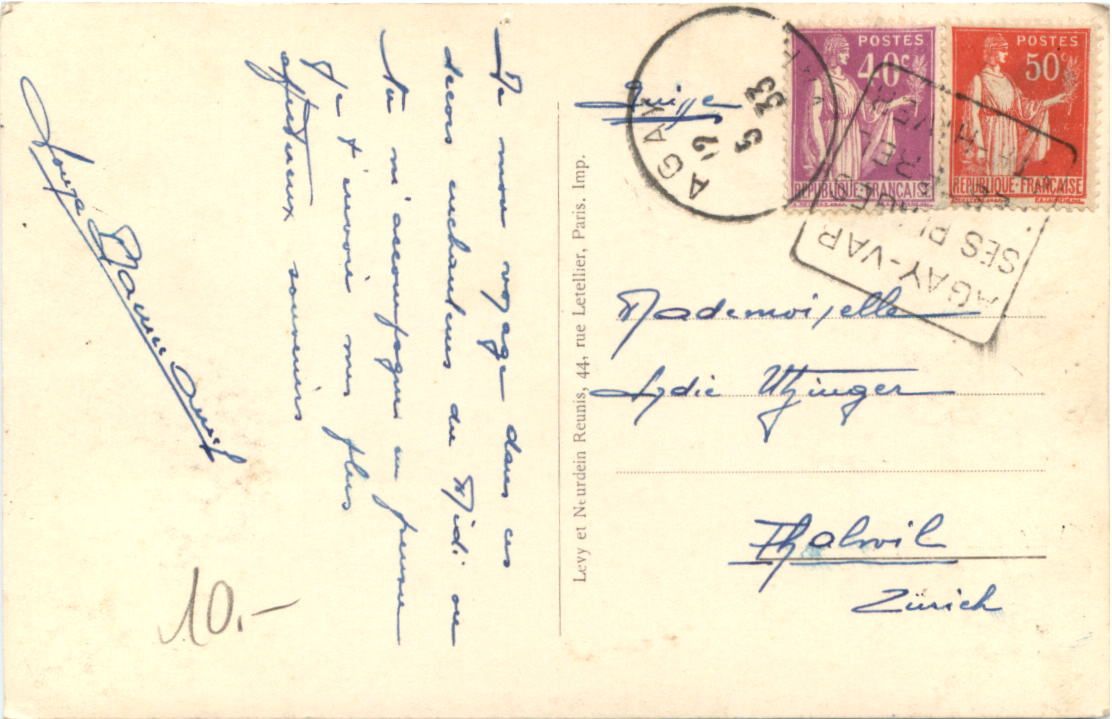 De mon voyage dans ces
decors enchanteurs du Midi ou
tu m'accompagnes en pensee
je t'envoie mes plus
affectueux souvenirs
10.-
Levy et Neurdein Reunis, 44, rue Letellier, Paris. Imp.
Suisse
AGAY
12
5 33
VAR
POSTES
40c
REPUBLIQUE-FRANÇAISE
POSTES
50c
REPUBLIQUE-FRANÇAISE
AGAY-VAR
SES
Mademoiselle
Lydie Utzinger
Thalwil
Zürich